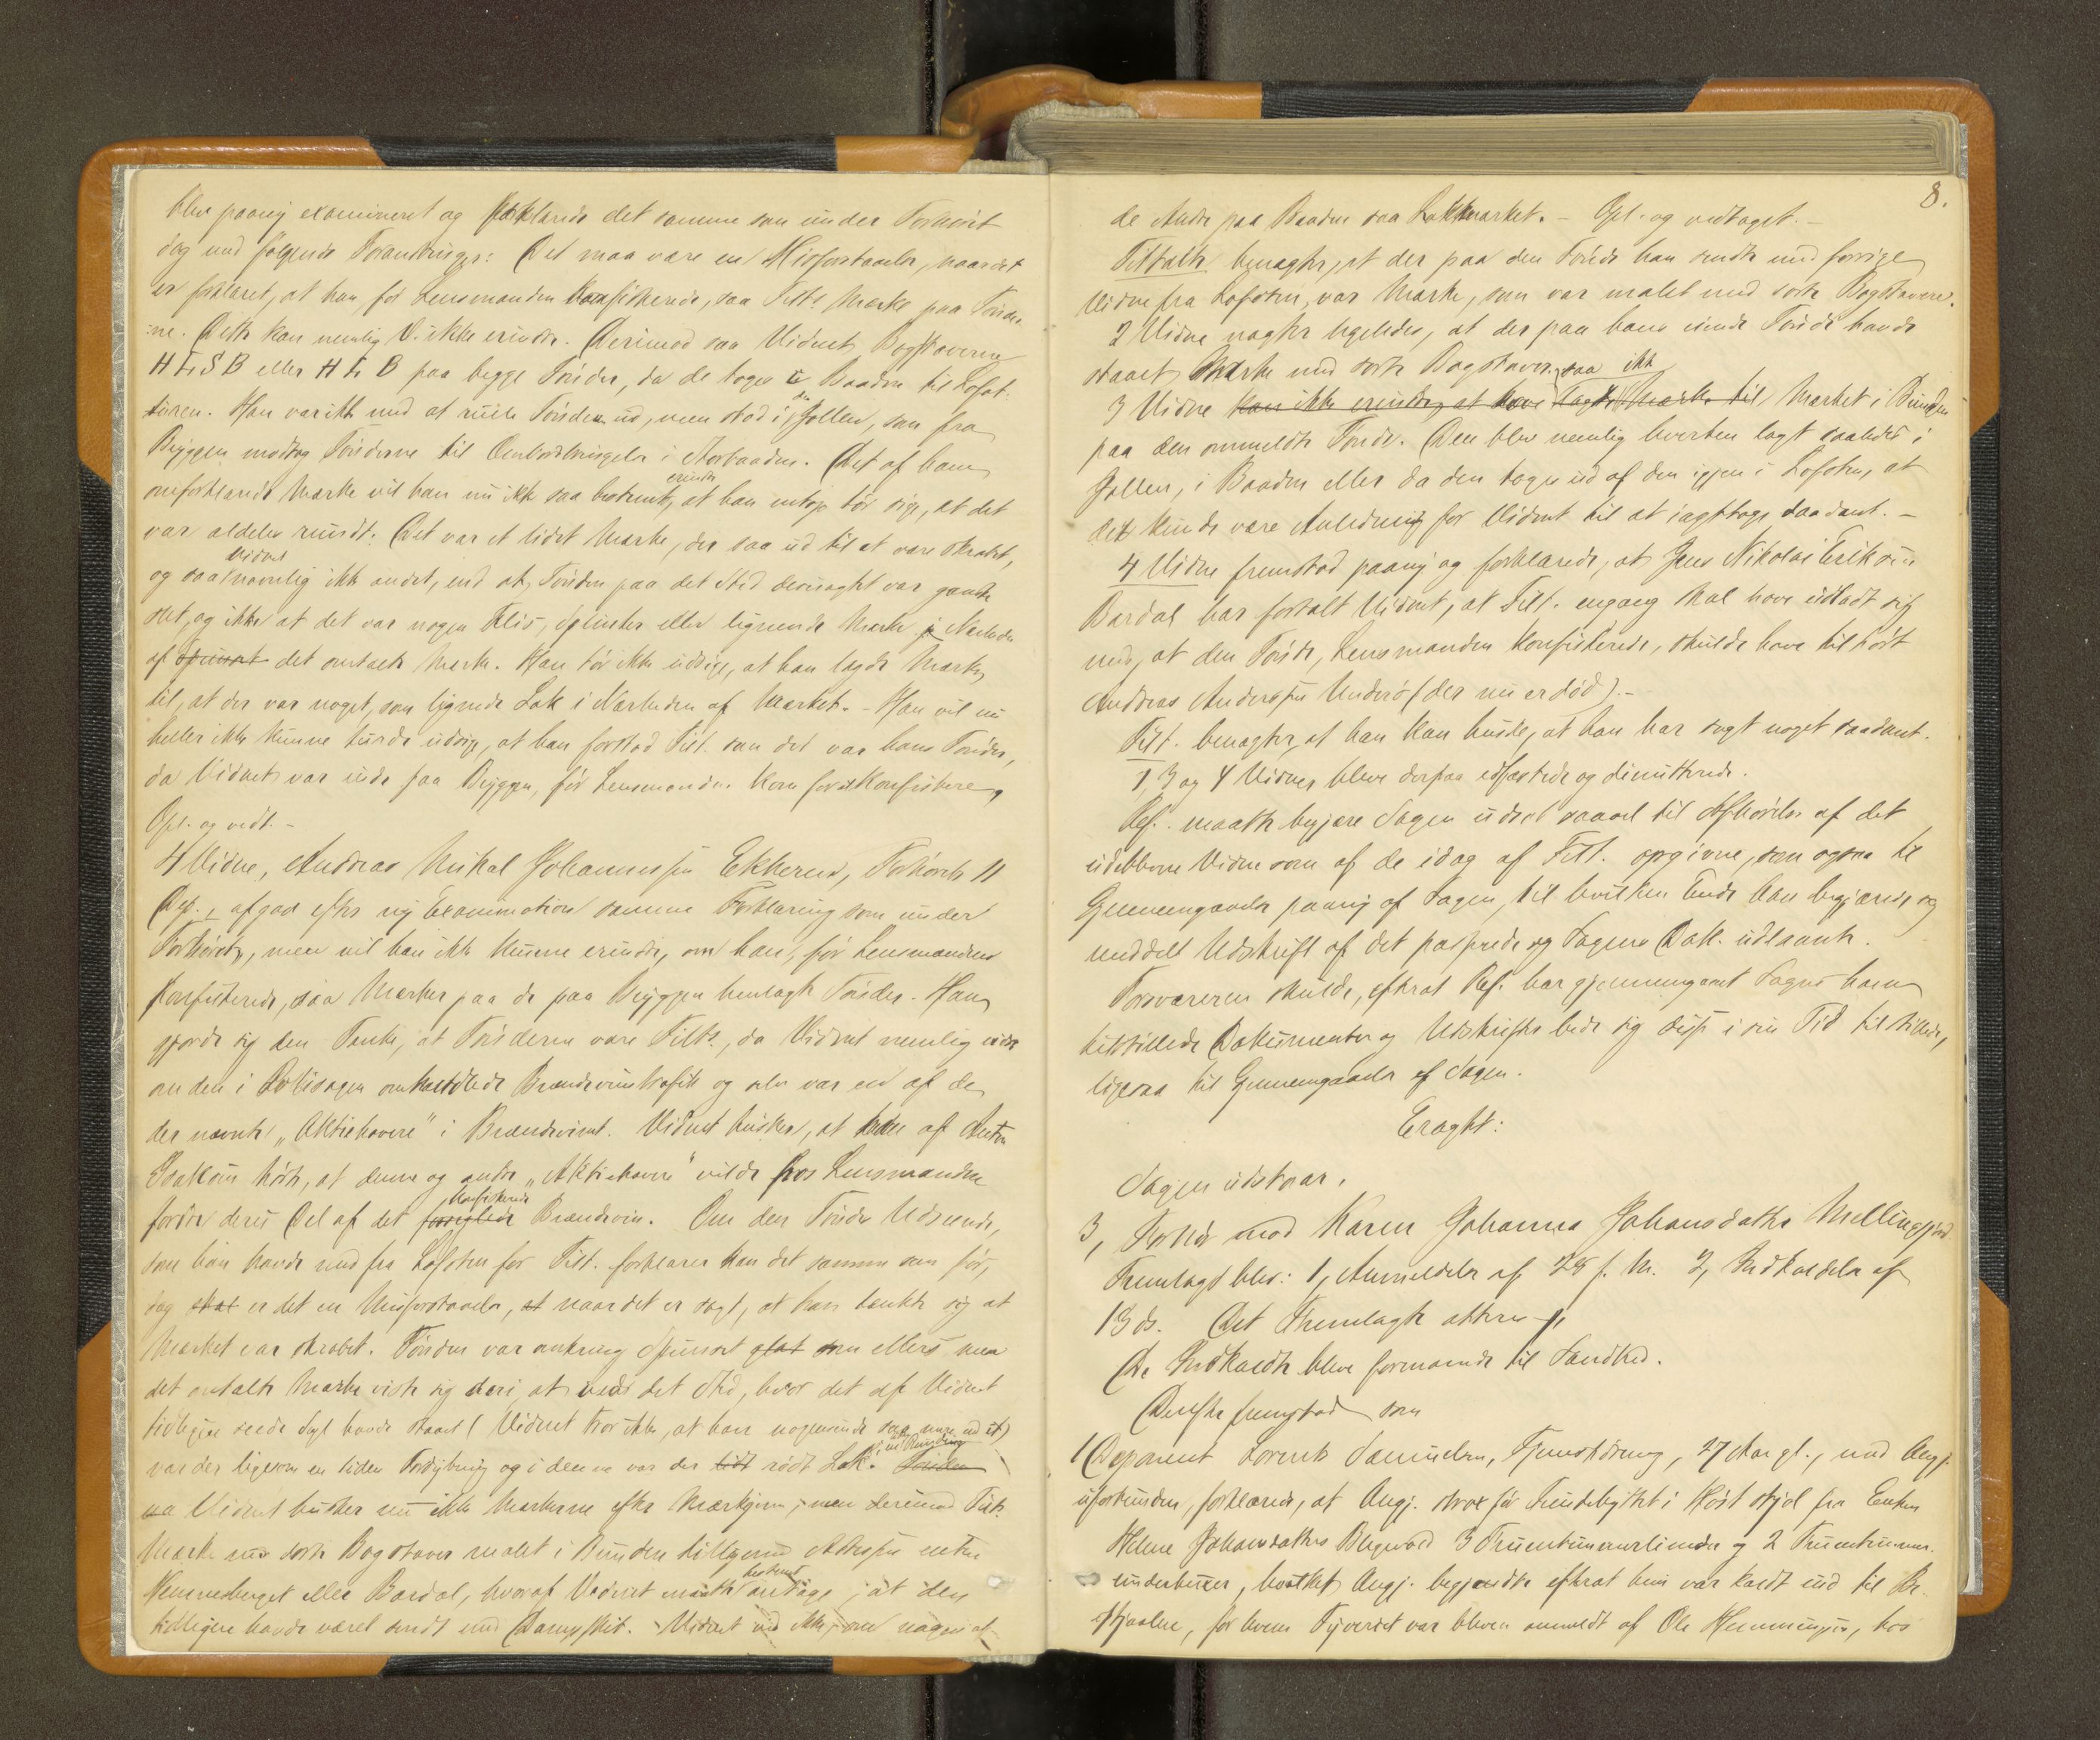 blev paany examineret og forklarede det samme som under Forhöret
dog med følgende Forandringer: Det maa være en Misforstaaelse, naar det
er forklaret, at han, før Lensmanden konfiskerede, saa Tilt.s Mærke paa Tönder
ne. Dette kan nemlig V. ikke erindre. Derimod saa Vidnet Bogstaverne
H L S B eller H L B paa begge Tönder, da de toges i Baaden til Lofot
turen. Han var ikke med at rulle Tönden ud, men stod i den Jollen, som fra
Bryggen modtog Tönderne til Ombordbringelse i Storbaaden. Det af ham
omforklarede Mærke vil han nu ikke saa bestemt erindre, at han netop tör sige, at det
var aldeles rundt. Det var et lidet Mærke, der saa ud til at være skrabet,
og saa Vidnet navnlig ikke andet, end at Tönden paa det Sted derimod var ganske
slet, og ikke at det var nogen Flis, Splinter eller lignende Mærke i Nærheden
af Spunset det omtalte Mærke. Han tör ikke udsige, at han lagde Mærke
til, at der var noget, som lignede Lak i Nærheden af Mærket. - Han vil nu
heller ikke kunne turde udsige, at han forstod Tilt. som det var hans Tönder,
da Vidnet var inde paa Bryggen, før Lensmanden kom for at konfiskere,
Opl. og vedt. -
4 Vidne, Andreas Mikal Johannessen Ekkeren, Forhörets 11
Dep., afgav efter ny Examination samme Forklaring som under
Forhöret, men vil han ikke kunne erindre, om han, før Lensmanden
konfiskerede, saa Mærker paa de paa Bryggen henlagte Tönder. Han
gjorde sig den Tanke, at Tönderne vare Tilts., da Vidnet nemlig vidste
om den i Politisagen omhandlede Brændevinstrafik og selv var en af de
der nævnte „Aktiehavere" i Brændevinet. Vidnet husker, at han af Anton
Isaksen hörte, at denne og andre „Aktiehavere" vilde hos Lensmanden
fordre deres Del af det forseglede konfiskerede Brændevin. Om den Tönde Udsende,
som han havde med fra Lofoten for Tilt. forklarer han det samme som før,
dog skal er det en Misforstaaelse, at naar det er sagt, at han tænkte sig at
Mærket var skrabet. Tönden var omkring Spunset glat som ellers, men
det omtalte Mærke viste sig deri, at ved det Sted, hvor det af Vidnet
tidligere seede Segl havde staaet (Vidnet tror ikke, at han nogensinde saa mere end et)
var der ligesom en liden Fordybning og i denne var der lidt rödt Lak. i en Runding Tönden
Vidnet husker nu ikke Mærkerne efter Mærkejern, men derimod Tilt.
Mærke med sorte Bogstaver malet i Bunden tilligemed Adresse enten
Hemnesberget eller Bardal, hvoraf Vidnet maatte bestemt antage, at den
tidligere havde været sendt med Dampskib. - Vidnet ved ikke, om nogen af
8.
de Andre paa Baaden saa Lakmærket. - Opl. og vedtaget. -
Tiltalte benægter, at der paa den Tönde han sendte med forrige
Vidne fra Lofoten, var Mærke, som var malet med sorte Bogstaver.
2 Vidne nægter ligeledes, at der paa hans ende Tönde havde
staaet Mærke med sorte Bogstaver.
3 Vidne kan ikke erindre, at have lagt Mærke til saa ikke Mærket i Bunden
paa den ommeldte Tönde. Den blev nemlig hverken lagt saaledes i
Jollen, i Baaden eller da den toges ud af den igjen i Lofoten, at
det kunde være Anledning for Vidnet til at iagttage saadant. -
4 Vidne fremstod paany og forklarede, at Jens Nikolai Eriksen
Bardal har fortalt Vidnet, at Tilt. engang skal have udladt sig
med, at den Tönde, Lensmanden konfiskerede, skulde have tilhört
Andreas Anderssen Underö (der nu er död). -
Tilt. benægter, at han kan huske, at han har sagt noget saadant.
1, 3 og 4 Vidner bleve derpaa edfæstede og dimitterede.
Ref. maatte begjære Sagen udsat saavel til Afhörelse af det
udeblevne Vidne som af de idag af Tilt. opgivne, som ogsaa til
Gjennemgaaelse paany af Sagen, til hvilken Ende han begjærede sig
meddelt Udskrift af det passerede og Sagens Dok. udlaante.
Forsvareren skulde, efterat Ref. har gjennemgaaet Sagens ham
tilstillede Dokumenter og Udskrifter bede sig disse i sin Tid tilstillede,
ligesaa til Gjennemgaaelse af Sagen.
Eragtet:
Sagen udstaar.
3, Forhör mod Karen Johanna Johansdatter Mellingsjord.
Fremlagt blev: 1, Anmeldelse af 28 f. M. 2, Indkaldelse af
13 ds. Det Fremlagte
De Indkaldte bleve formanede til Sandhed.
Derefter fremstod som
1 Deponent Lorents Samuelsen, Tjenestedreng, 27 Aar gl., med Angj.
uforbunden, forklarede, at Angj. strax før Tiendebyttet i Höst stjal fra Enken
Helene Johansdatter 3 Fruentimmerlinneder og 2 Fruentimmer-
underbuxer, hvilket Angj. begjendte efterat hun var kaldt ind til Be-
stjaalne, for hvem Tyveriet var bleven anmeldt af Ole Henningsen, hos